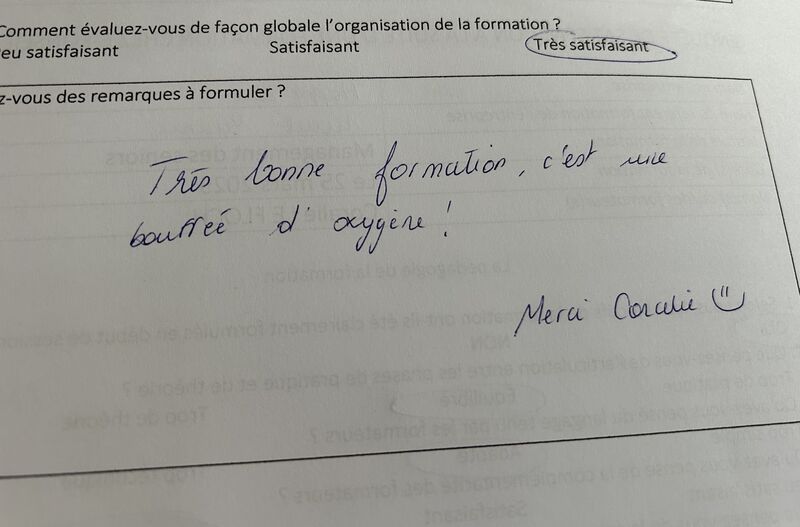 Comment évaluez-vous de façon globale l'organisation de la formation ?
eu satisfaisant Satisfaisant Très satisfaisant
z-vous des remarques à formuler ?
Très bonne formation, c'est une
bouffeé d'oxygène !
Merci Coralie